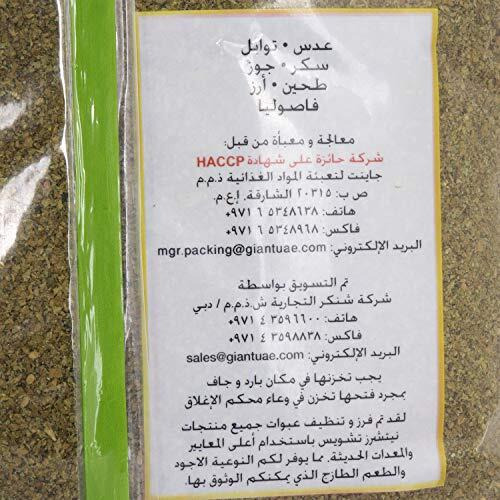 عدس • توابل
سكر • جوز
طحين • أرز
فاصوليا
معالجة و معبأة من قبل:
شركة حائزة على شهادة HACCP
جاينت لتعبئة المواد الغذائية ذ.م.م
ص ب: ٢٠٣١٥ الشارقة, إ.ع.م.
هاتف: ٥٣٤٨٦٣٨ ٦ ٩٧١+
فاكس: ٥٣٤٨٩٦٨ ٦ ٩٧١+
البريد الإلكتروني: mgr.packing@giantuae.com
تم التسويق بواسطة
شركة شنكر التجارية ش.ذ.م.م / دبي
هاتف: ٣٥٩٦٦٠٠ ٤ ٩٧١+
فاكس: ٣٥٩٨٨٣٨ ٤ ٩٧١+
البريد الإلكتروني: sales@giantuae.com
يجب تخزنها في مكان بارد و جاف
بمجرد فتحها تخزن في وعاء محكم الإغلاق
لقد تم فرز و تنظيف عبوات جميع منتجات
نيتشرز تشويس باستخدام أعلى المعايير
والمعدات الحديثة. مما يوفر لكم النوعية الاجود
والطعم الطازج الذي يمكنكم الوثوق بها.